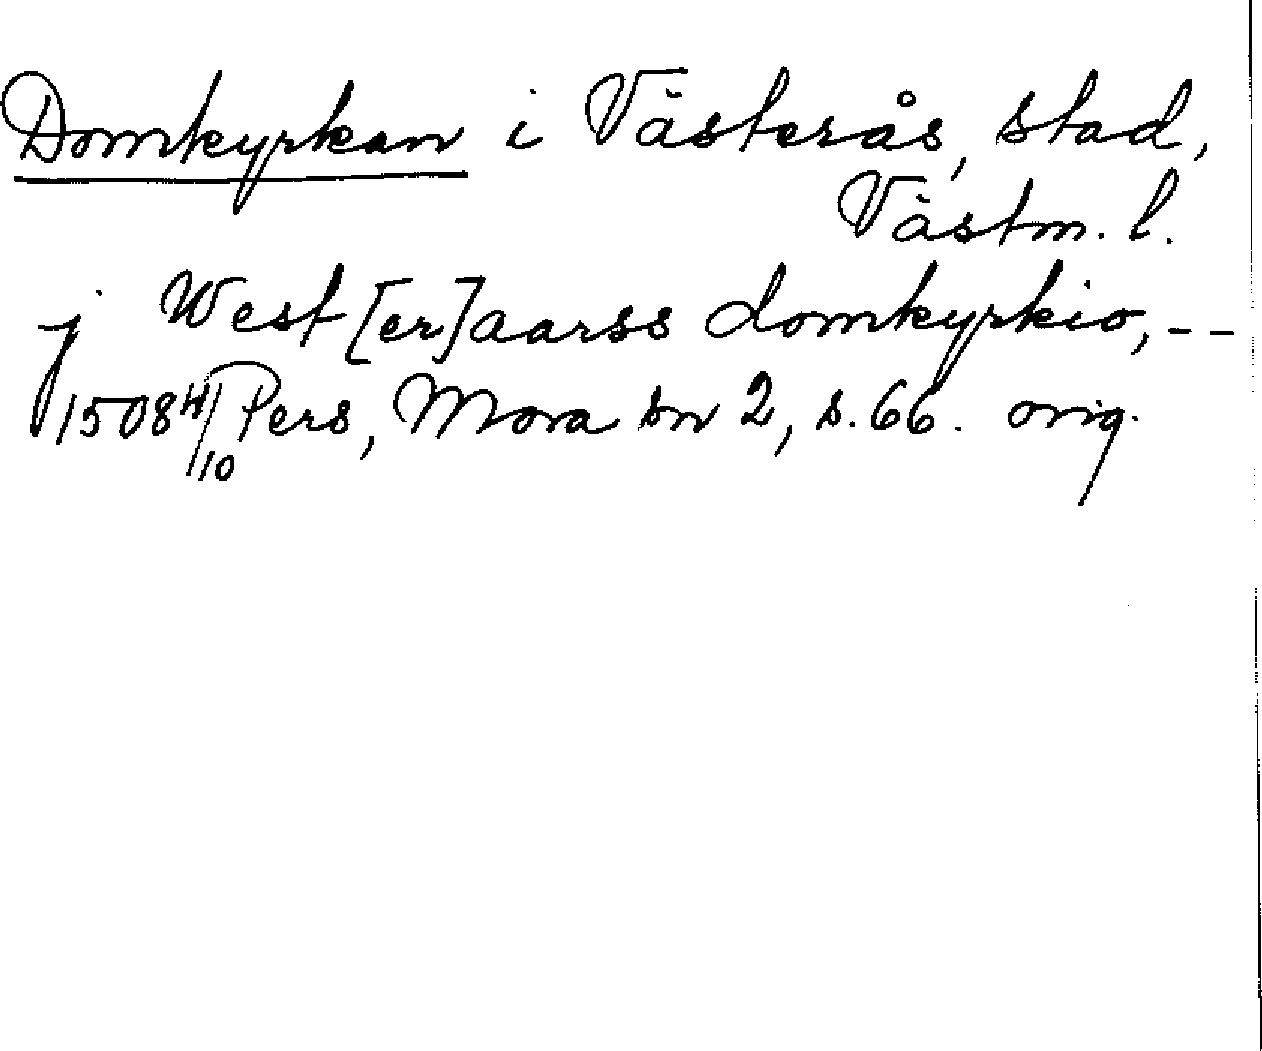 Domkyrkan i Västerås, stad,
Västm. l.
j West[er]aarss domkyrkio, - -
1508 4/10 Pers, Mora sn 2, s. 66. orig.